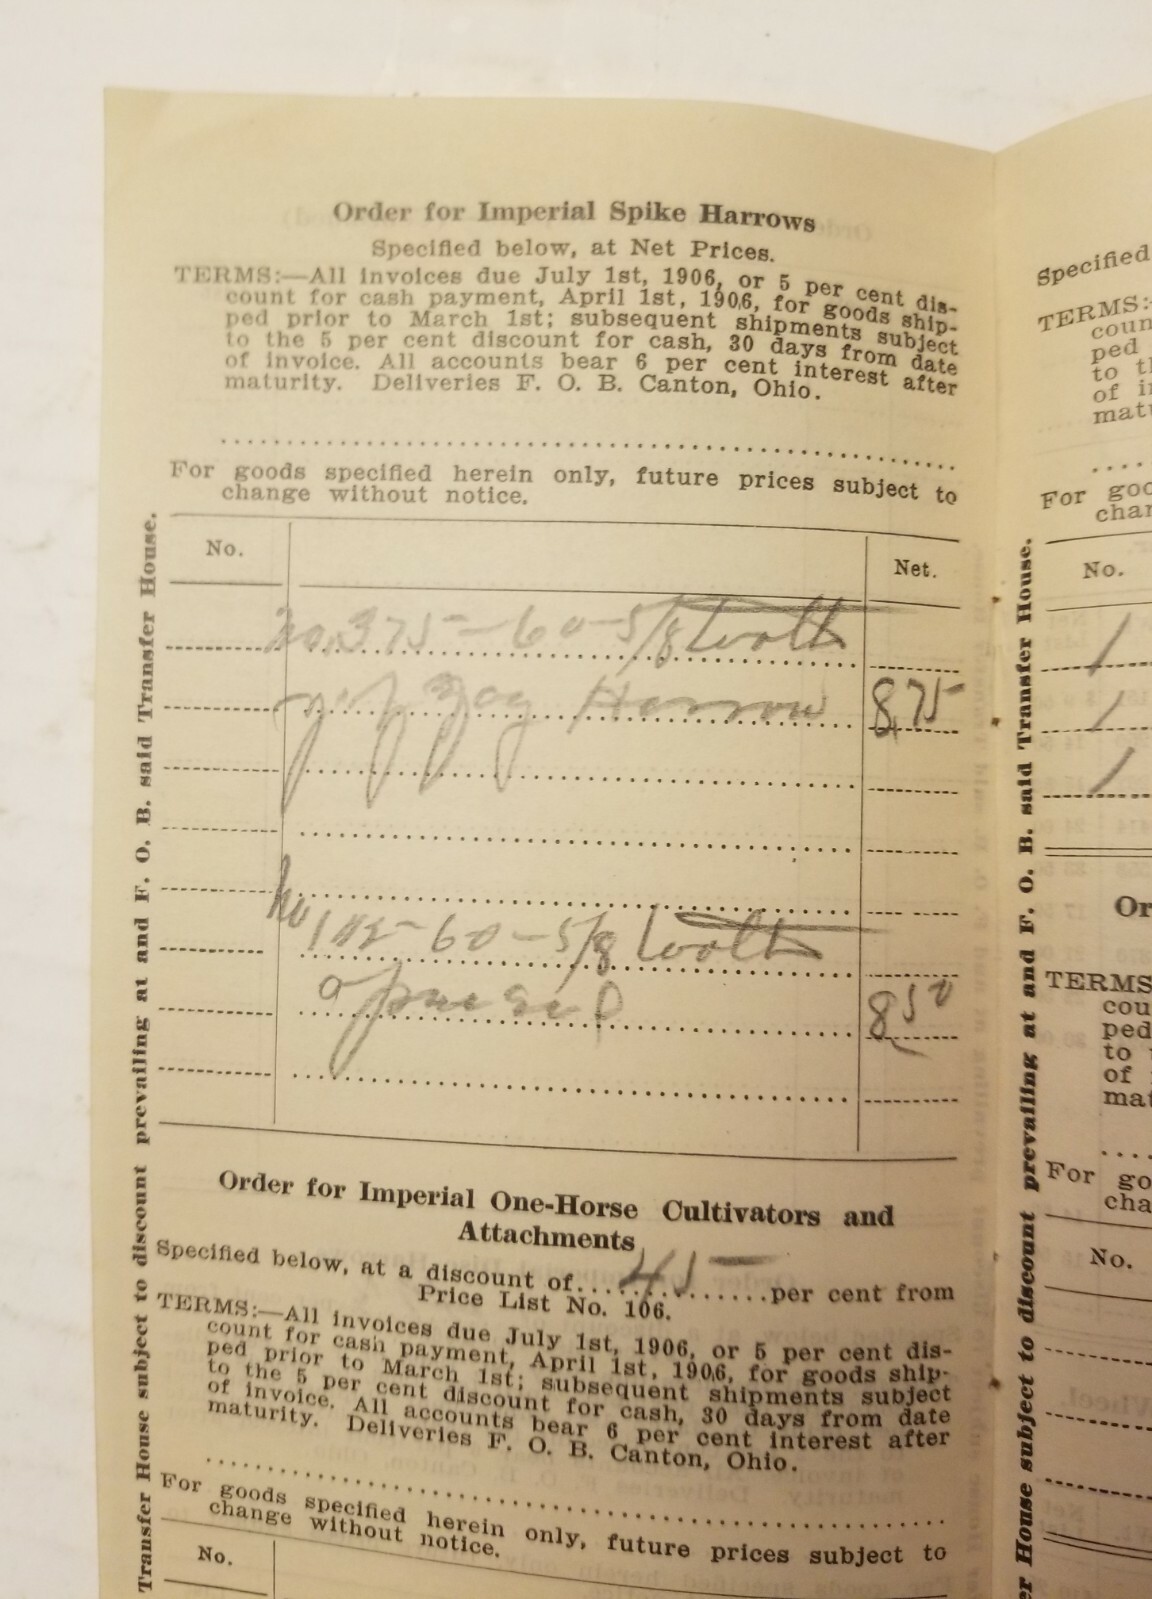 Order for Imperial Spike Harrows
Specified below, at Net Prices.
TERMS:—All invoices due July 1st, 1906, or 5 per cent dis-
count for cash payment, April 1st, 1906, for goods ship-
ped prior to March 1st; subsequent shipments subject
to the 5 per cent discount for cash, 30 days from date
of invoice. All accounts bear 6 per cent interest after
maturity. Deliveries F. O. B. Canton, Ohio.
For goods specified herein only, future prices subject to
change without notice.
No. Net.
No. 375-60-5/8 tooth
Zig Zag Harrow 8,75
No 182-60-5/8 tooth
850
Order for Imperial One-Horse Cultivators and
Attachments
Specified below, at a discount of....45....per cent from
Price List No. 106.
TERMS:—All invoices due July 1st, 1906, or 5 per cent dis-
count for cash payment, April 1st, 1906, for goods ship-
ped prior to March 1st; subsequent shipments subject
to the 5 per cent discount for cash, 30 days from date
of invoice. All accounts bear 6 per cent interest after
maturity. Deliveries F. O. B. Canton, Ohio.
For goods specified herein only, future prices subject to
change without notice.
No.
Transfer House subject to discount prevailing at and F. O. B. said Transfer House.
Specified
TERMS:
coun
ped
to th
of in
matu
For goo
chan
No.
1
1
1
Or
TERMS
cou
ped
to
of
mat
For go
cha
No.
er House subject to discount prevailing at and F. O. B. said Transfer House.